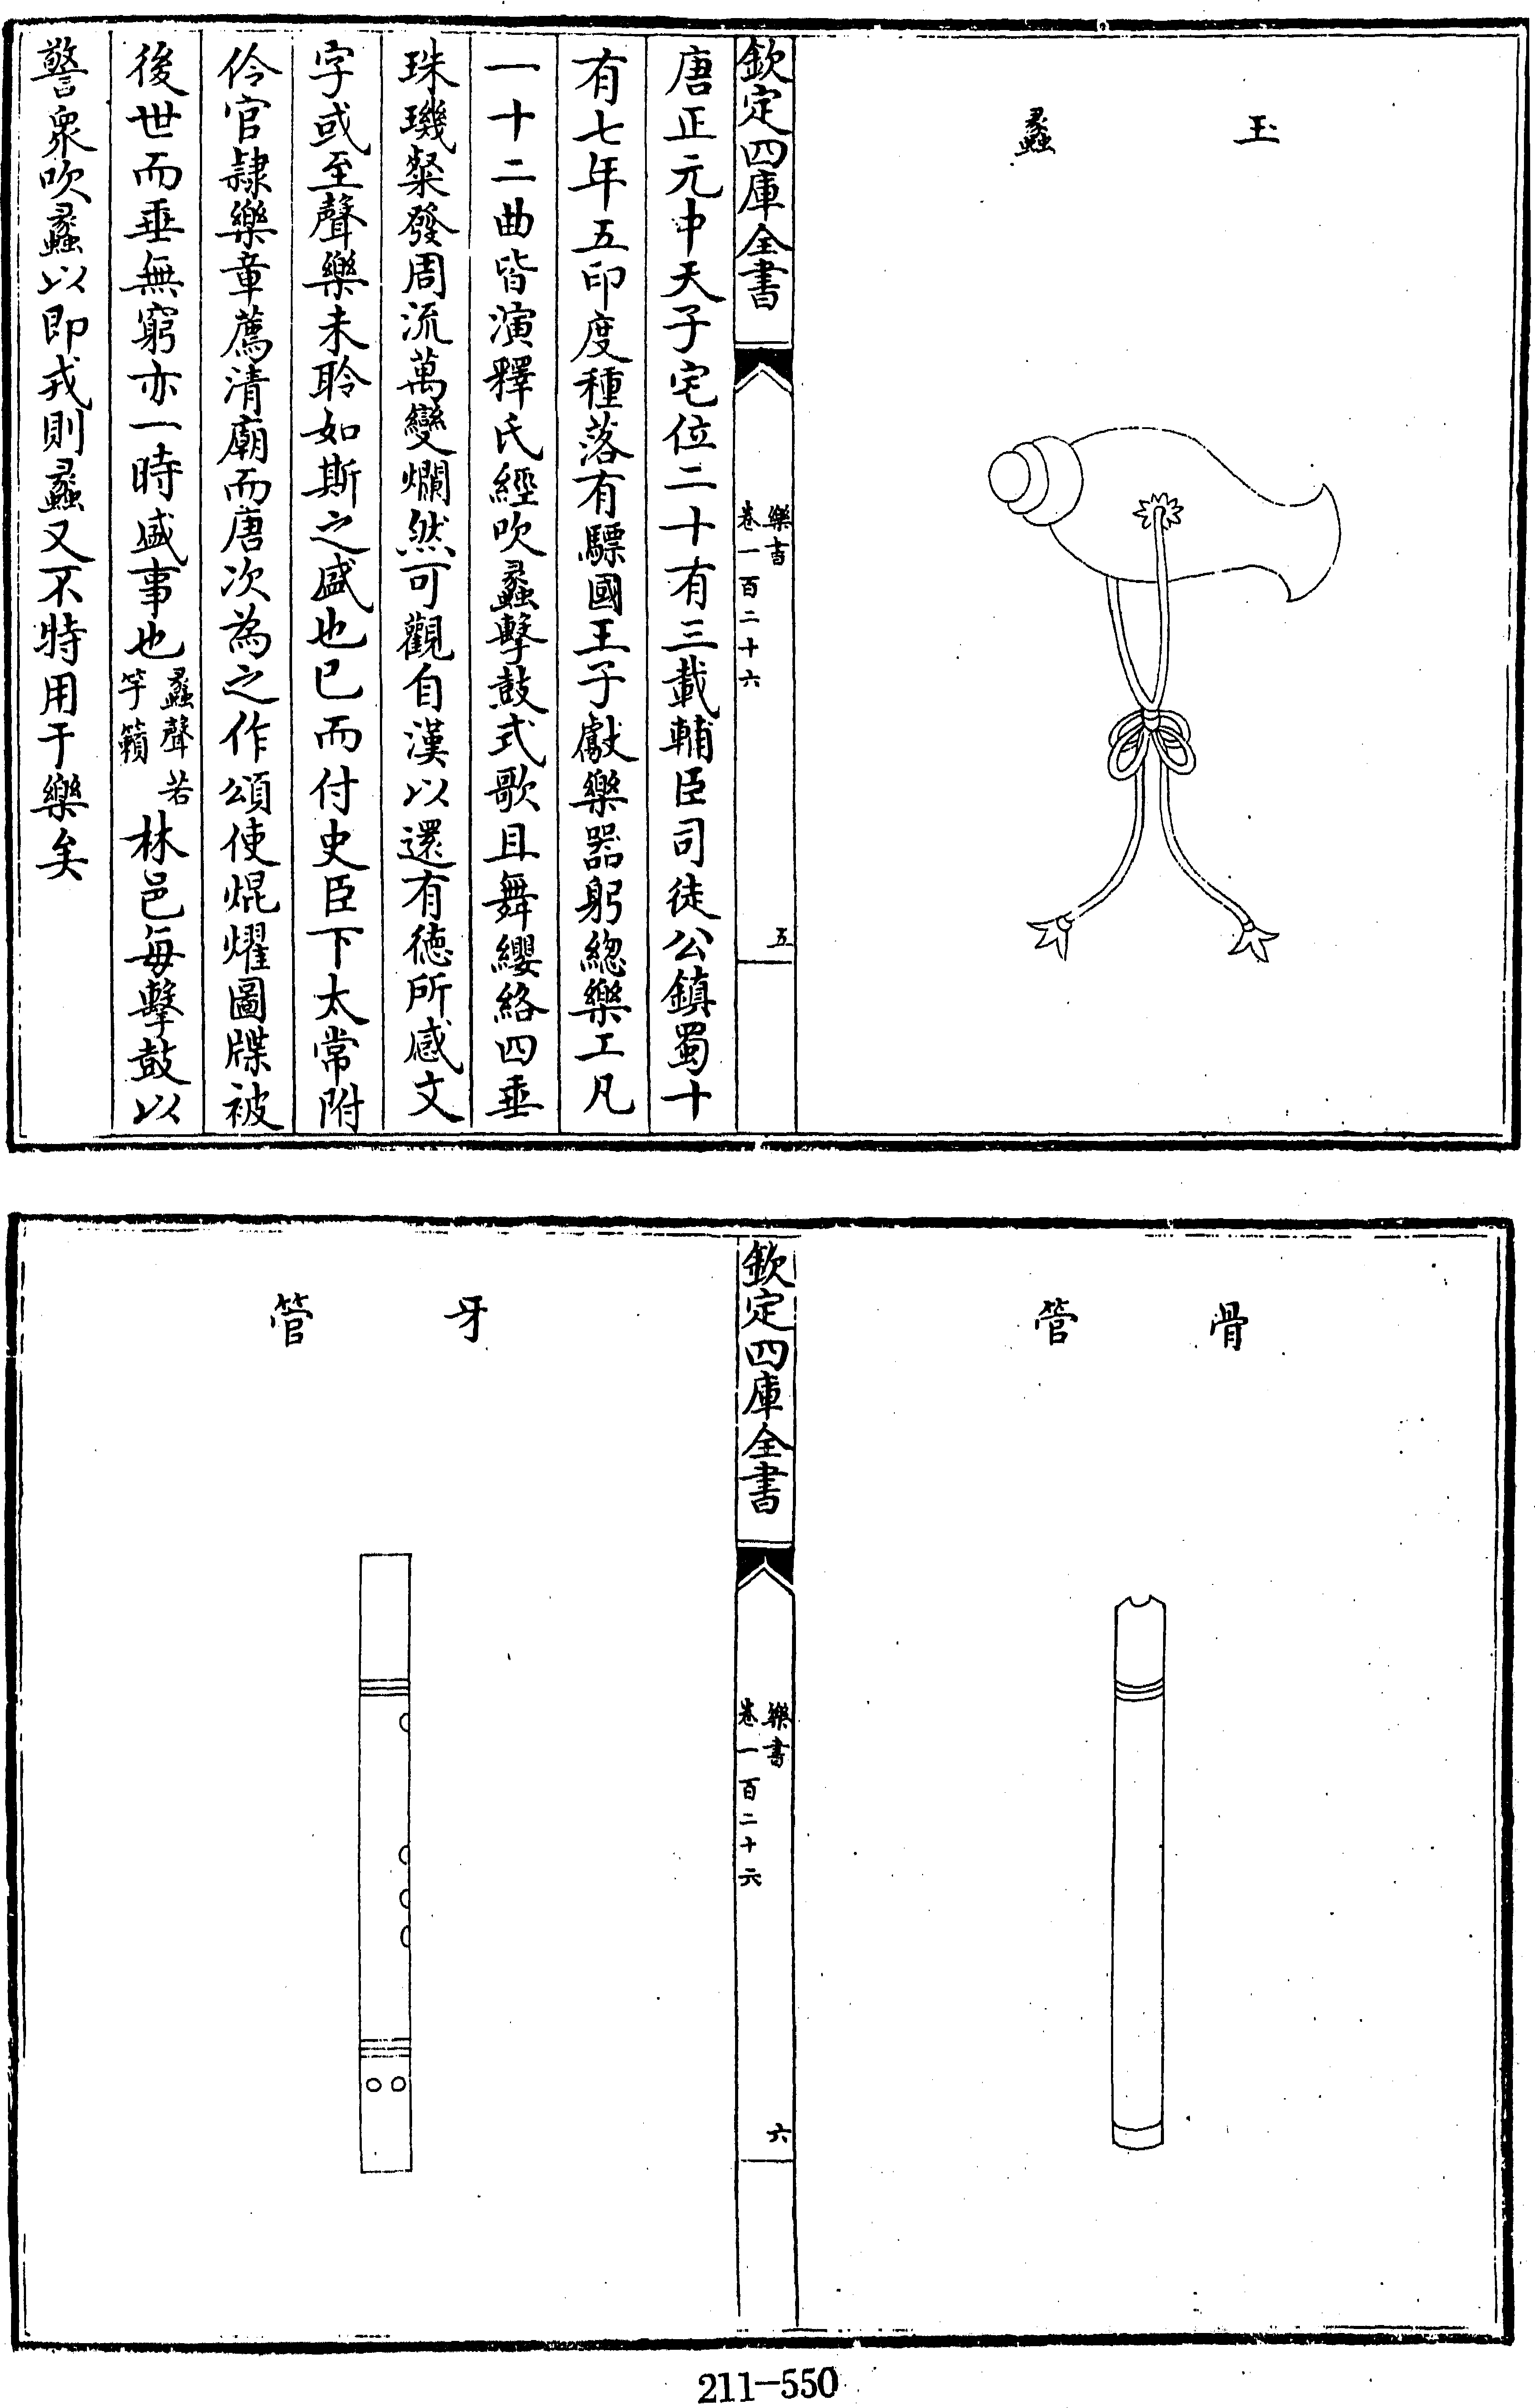 玉蠡
欽定四庫全書
樂書
卷一百二十六
五
唐正元中天子宅位二十有三載輔臣司徒公鎮蜀十
有七年五印度種落有驃國王子獻樂器躬緫樂工凡
一十二曲皆演釋氏經吹蠡擊鼓式歌且舞纓絡四垂
珠璣粲發周流萬變爛然可觀自漢以還有徳所感文
字或至聲樂未聆如斯之盛也已而付史臣下太常附
伶官隷樂章薦清廟而唐次為之作頌使焜燿圖牒被
後世而垂無窮亦一時盛事也
蠡聲若
竽籟
林邑每擊鼓以
警衆吹蠡以即戎則蠡又不特用于樂矣
骨管
欽定四庫全書
樂書
卷一百二十六
六
牙管
211-550